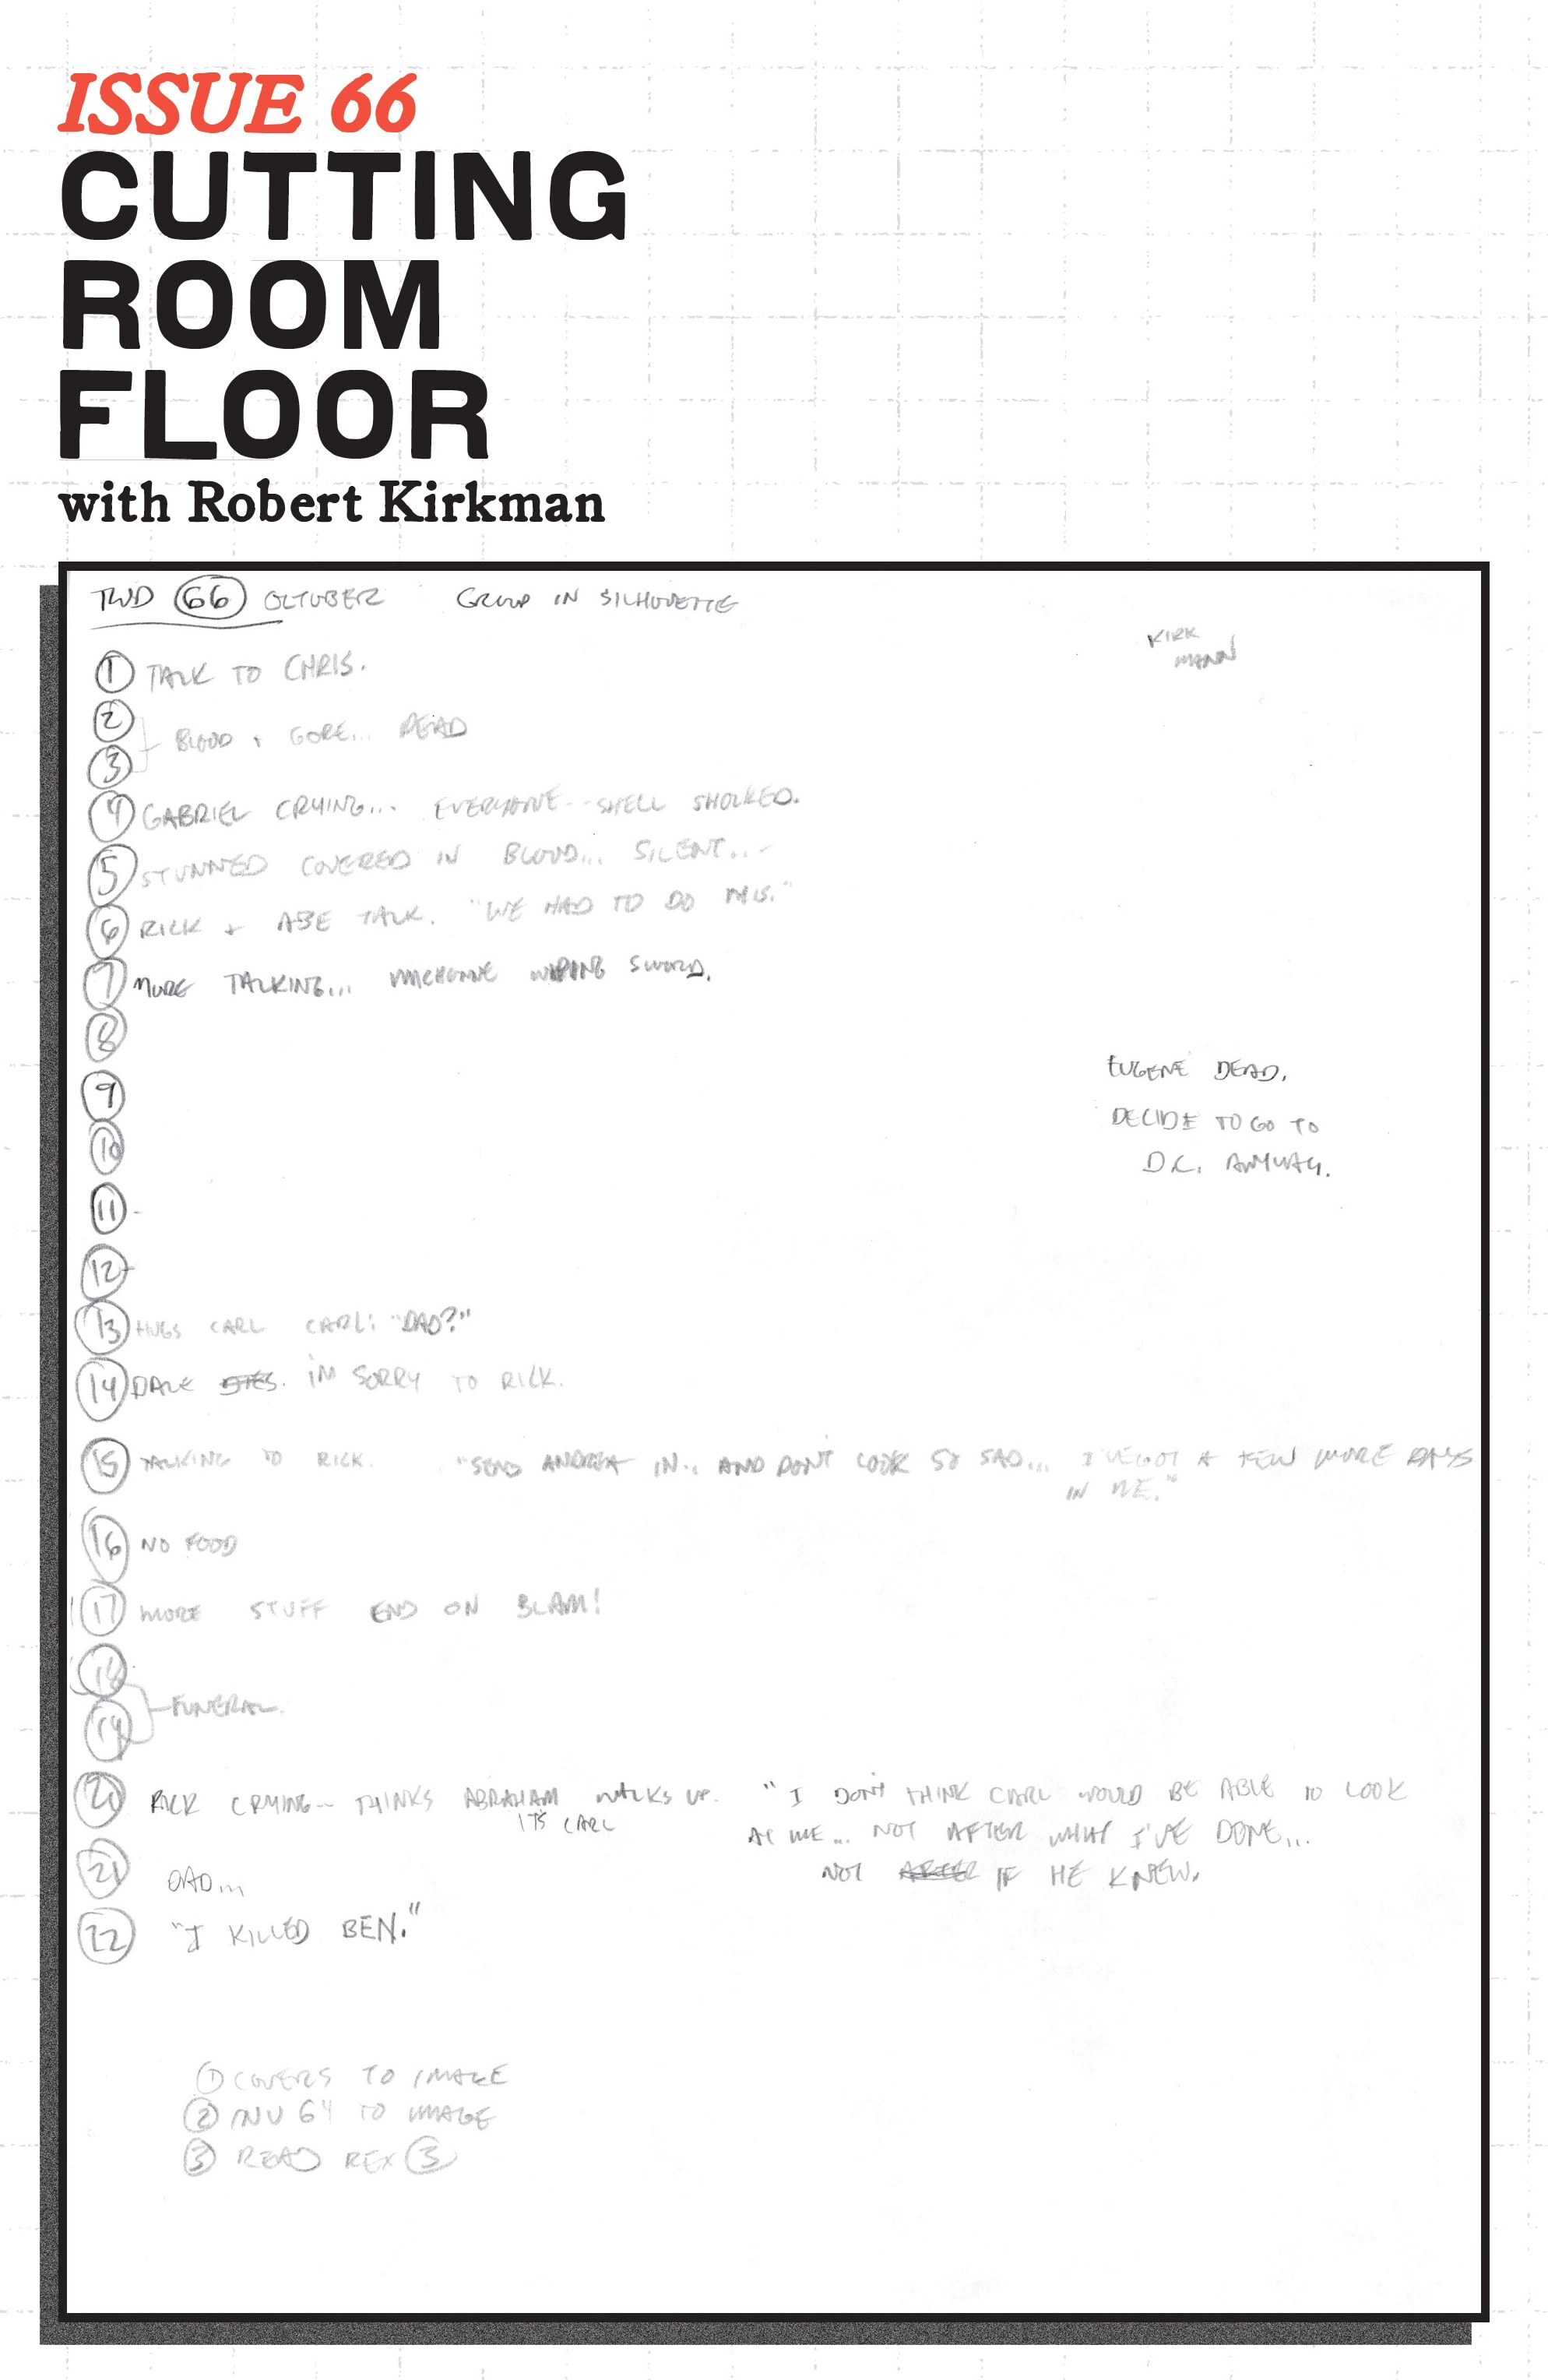 ISSUE 66
CUTTING
ROOM
FLOOR
with Robert Kirkman
TWD 66 OCTOBER GROUP IN SILHOUETTE
KIRK
MANN
1 TALK TO CHRIS.
2
3 BLOOD + GORE... DEAD
4 GABRIEL CRYING... EVERYONE-- SHELL SHOCKED.
5 STUNNED COVERED IN BLOOD... SILENT...
6 RICK + ABE TALK. "WE HAD TO DO THIS."
7 MORE TALKING... MICHONNE WIPING SWORD.
8
9
10
11
12
EUGENE DEAD.
DECIDE TO GO TO
D.C. ANYWAY.
13 HUGS CARL CARL: "DAD?"
14 DALE DIES. I'M SORRY TO RICK.
15 TALKING TO RICK. "SEND ANDREA IN.. AND DON'T LOOK SO SAD... I'VE GOT A FEW MORE DAYS
IN ME."
16 NO FOOD
17 MORE STUFF END ON BLAM!
18
19 FUNERAL.
20 RICK CRYING-- THINKS ABRAHAM WALKS UP. "I DON'T THINK CARL WOULD BE ABLE TO LOOK
IT'S CARL
AT ME... NOT AFTER WHAT I'VE DONE...
NOT AFTER IF HE KNEW.
21 DAD...
22 "I KILLED BEN."
1 COVERS TO IMAGE
2 INV 64 TO IMAGE
3 READ REX 3